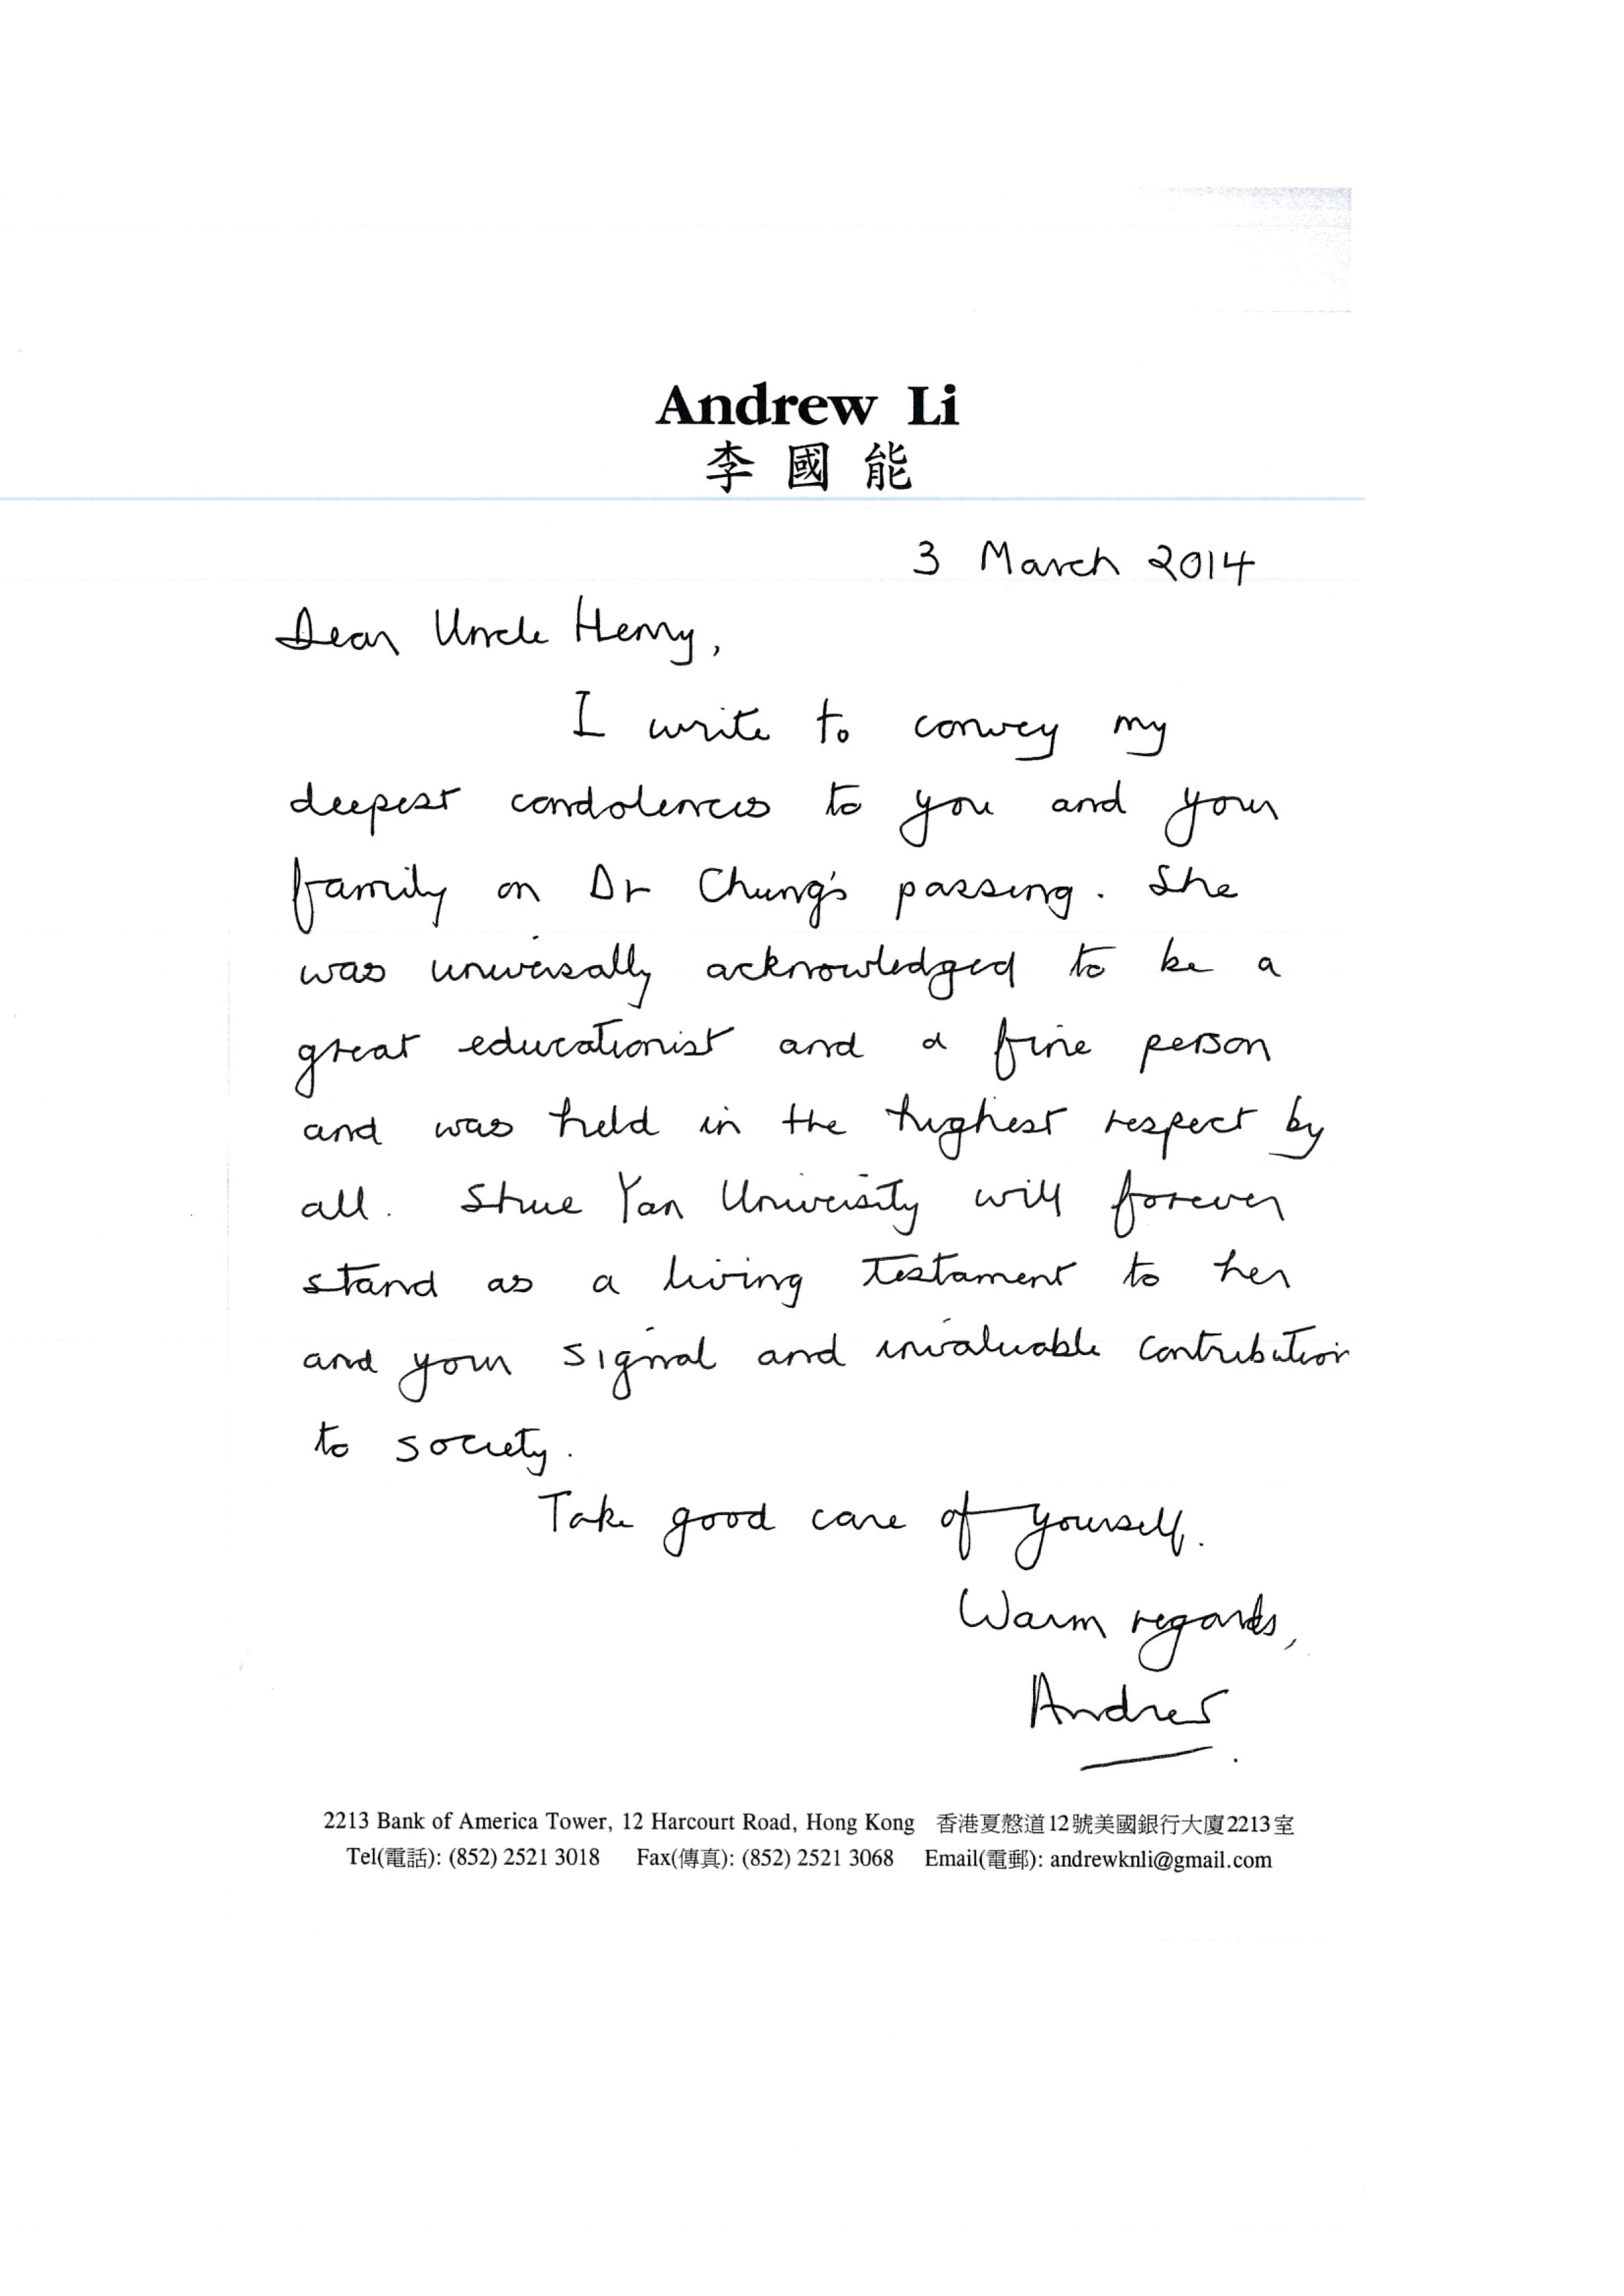 Andrew Li
李國能
3 March 2014
Dear Uncle Henry,
I write to convey my
deepest condolences to you and your
family on Dr Chung's passing. She
was universally acknowledged to be a
great educationist and a fine person
and was held in the highest respect by
all. Shue Yan University will forever
stand as a living testament to her
and your signal and invaluable contribution
to society.
Take good care of yourself.
Warm regards,
Andrew
2213 Bank of America Tower, 12 Harcourt Road, Hong Kong 香港夏慤道12號美國銀行大廈2213室
Tel(電話): (852) 2521 3018 Fax(傳真): (852) 2521 3068 Email(電郵): andrewknli@gmail.com